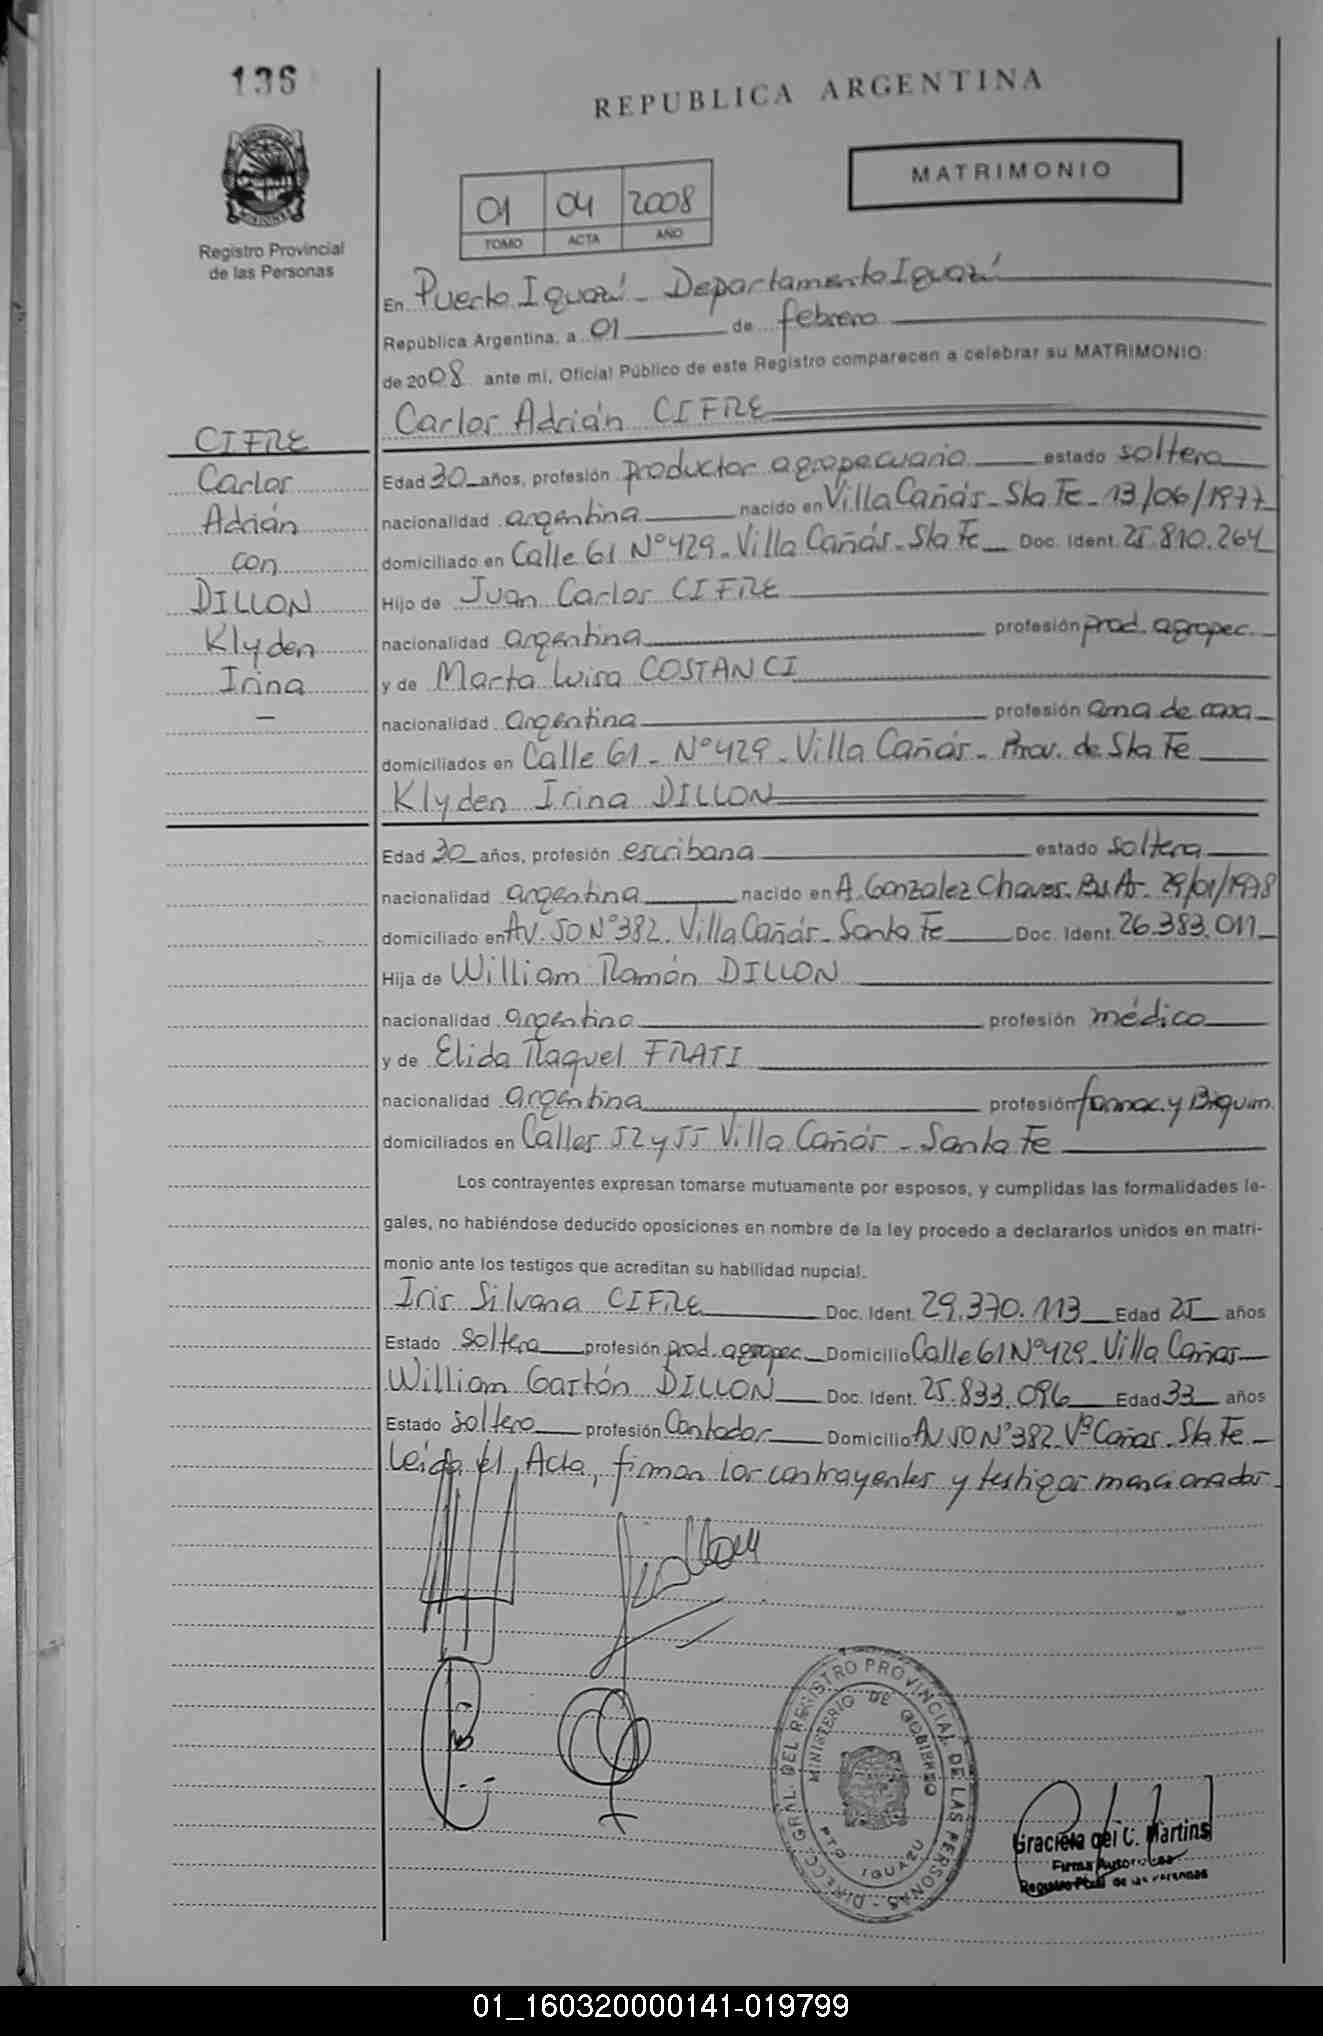 136
REPUBLICA ARGENTINA
MATRIMONIO
01 04 2008
TOMO ACTA AÑO
Registro Provincial
de las Personas
En Puerto Iguazú - Departamento Iguazú
República Argentina, a 01 de febrero
de 2008 ante mí, Oficial Público de este Registro comparecen a celebrar su MATRIMONIO:
Carlos Adrián CIFRE
CIFRE
Carlos
Adrián
con
DILLON
Klyden
Irina
-
Edad 30 años, profesión productor agropecuario estado soltero
nacionalidad argentina nacido en Villa Cañás - Sta Fe - 13/06/1977
domiciliado en Calle 61 Nº 429 - Villa Cañás - Sta Fe Doc. Ident. 25.810.264
Hijo de Juan Carlos CIFRE
nacionalidad argentina profesión prod. agropec.
y de Marta Luisa COSTANCI
nacionalidad argentina profesión ama de casa
domiciliados en Calle 61 - Nº 429 - Villa Cañás - Prov. de Sta Fe
Klyden Irina DILLON
Edad 30 años, profesión escribana estado soltera
nacionalidad argentina nacido en A. Gonzalez Chaves - Bs As - 29/01/1978
domiciliado en Av. 50 Nº 382 - Villa Cañás - Santa Fe Doc. Ident. 26.383.011
Hija de William Ramón DILLON
nacionalidad argentina profesión médico
y de Elida Raquel FRATI
nacionalidad argentina profesión farmac. y Bioquim.
domiciliados en Calles 52 y 55 Villa Cañás - Santa Fe
Los contrayentes expresan tomarse mutuamente por esposos, y cumplidas las formalidades le-
gales, no habiéndose deducido oposiciones en nombre de la ley procedo a declararlos unidos en matri-
monio ante los testigos que acreditan su habilidad nupcial.
Iris Silvana CIFRE Doc. Ident. 29.370.113 Edad 25 años
Estado soltera profesión prod. agropec. Domicilio Calle 61 Nº 429 - Villa Cañas
William Gastón DILLON Doc. Ident. 25.833.096 Edad 33 años
Estado soltero profesión Contador Domicilio Av 50 Nº 382 - Vª Cañas - Sta Fe
Leída el Acta, firman los contrayentes y testigos mencionados
DIRECC. GRAL. DEL REGISTRO PROVINCIAL DE LAS PERSONAS
MINISTERIO DE GOBIERNO
PTO IGUAZU
Graciela del C. Martins
Firma
Registro de las Personas
01_160320000141-019799